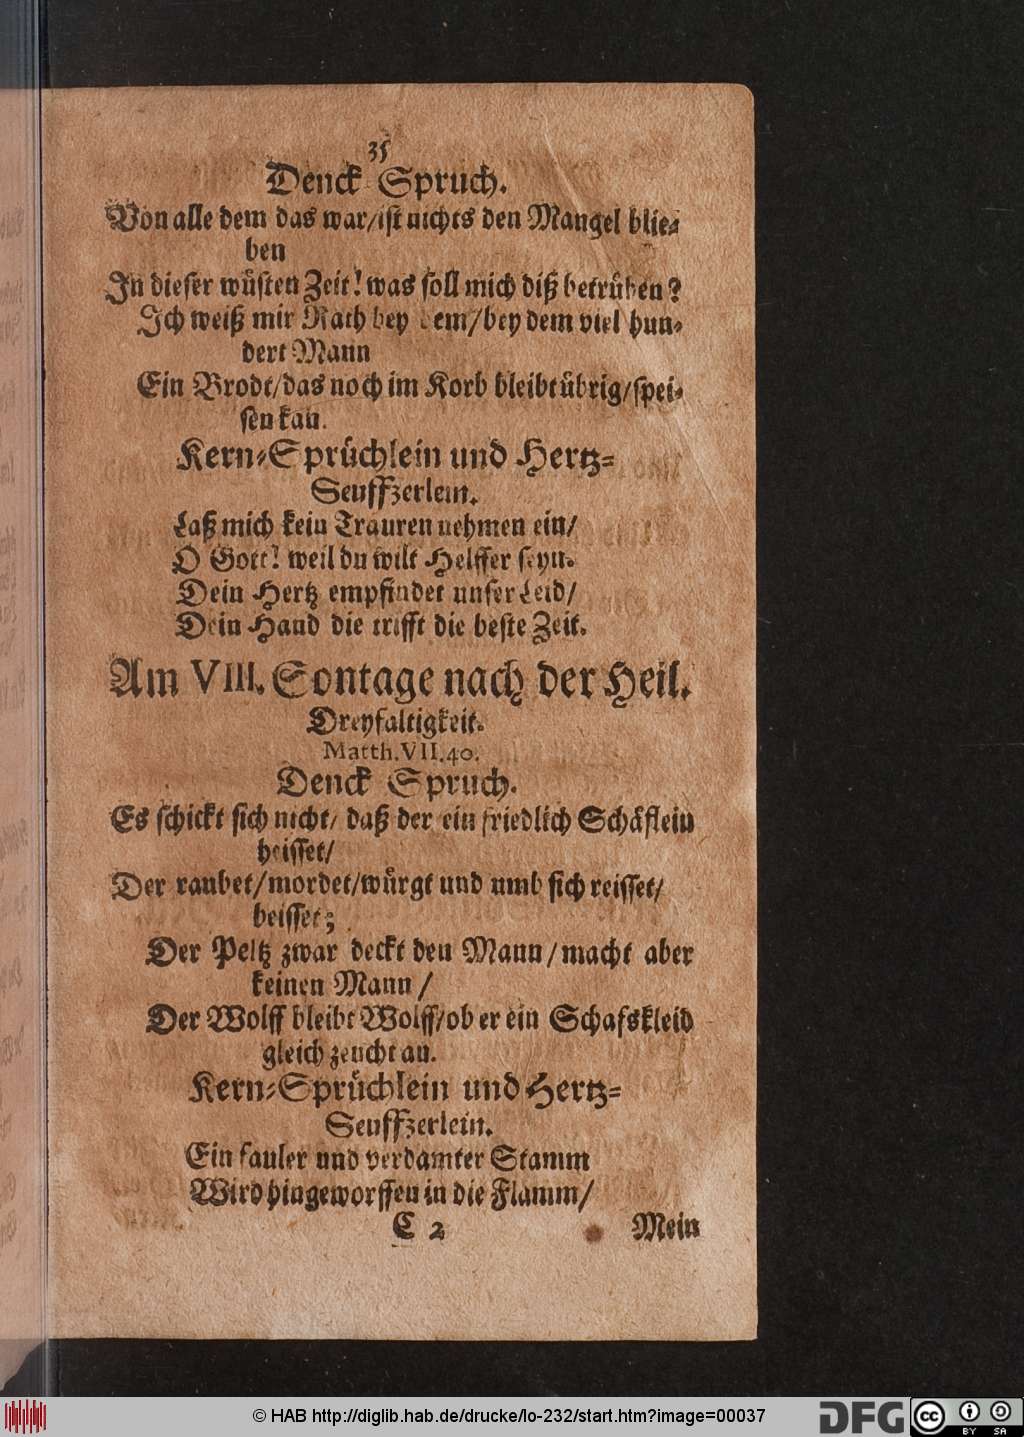 35
Denck Spruch.
Von alle dem das war/ist nichts den Mangel blie-
ben
In dieser wüsten Zeit! was soll mich diß betrüben?
Ich weiß mir Rath bey dem/bey dem viel hun-
dert Mann
Ein Brodt/das noch im Korb bleibt übrig/spei-
sen kan.
Kern-Sprüchlein und Hertz-
Seuffzerlein.
Laß mich kein Trauren nehmen ein/
O Gott! weil du wilt Helffer seyn.
Dein Hertz empfindet unser Leid/
Dein Hand die trifft die beste Zeit.
Am VIII. Sontage nach der Heil.
Dreyfaltigkeit.
Matth.VII.40.
Denck Spruch.
Es schickt sich nicht/ daß der ein friedlich Schäflein
heisset/
Der raubet/mordet/würgt und umb sich reisset/
beisset;
Der Peltz zwar deckt den Mann/macht aber
keinen Mann/
Der Wolff bleibt Wolff/ob er ein Schafskleid
gleich zeucht an.
Kern-Sprüchlein und Hertz-
Seuffzerlein.
Ein fauler und verdamter Stamm
Wird hingeworffen in die Flamm/
C 2 Mein
© HAB http://diglib.hab.de/drucke/lo-232/start.htm?image=00037
DFG
cc BY SA